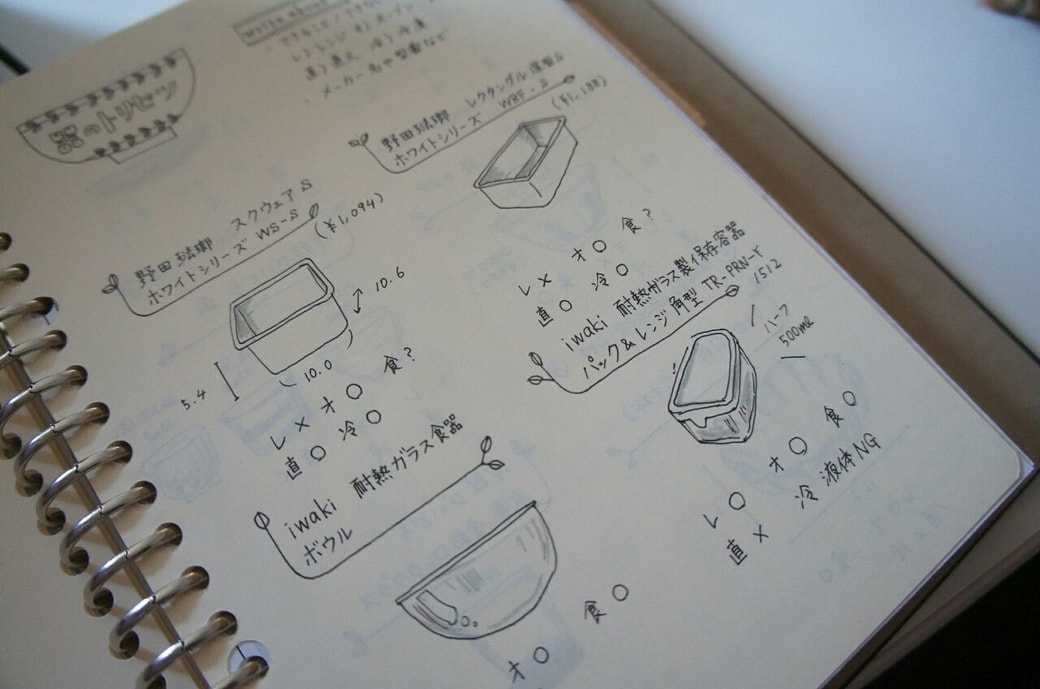 器のトリセツ
write about
・できること/できない
レ)レンジ オ)オーブン
直)直火 冷)冷凍
・メーカー名や型番など
野田琺瑯 スクウェア S
ホワイトシリーズ WS-S
(¥1,094)
10.6
10.0
5.4
レ× オ○ 食?
直○ 冷○
iwaki 耐熱ガラス食器
ボウル
オ○ 食○
野田琺瑯 レクタングル深型S
ホワイトシリーズ WRF-S
(¥1,188)
レ× オ○ 食?
直○ 冷○
iwaki 耐熱ガラス製保存容器
パック&レンジ角型 TR-PRN-Y
1512
ハーフ
500ml
レ○ オ○ 食○
直× 冷 液体NG